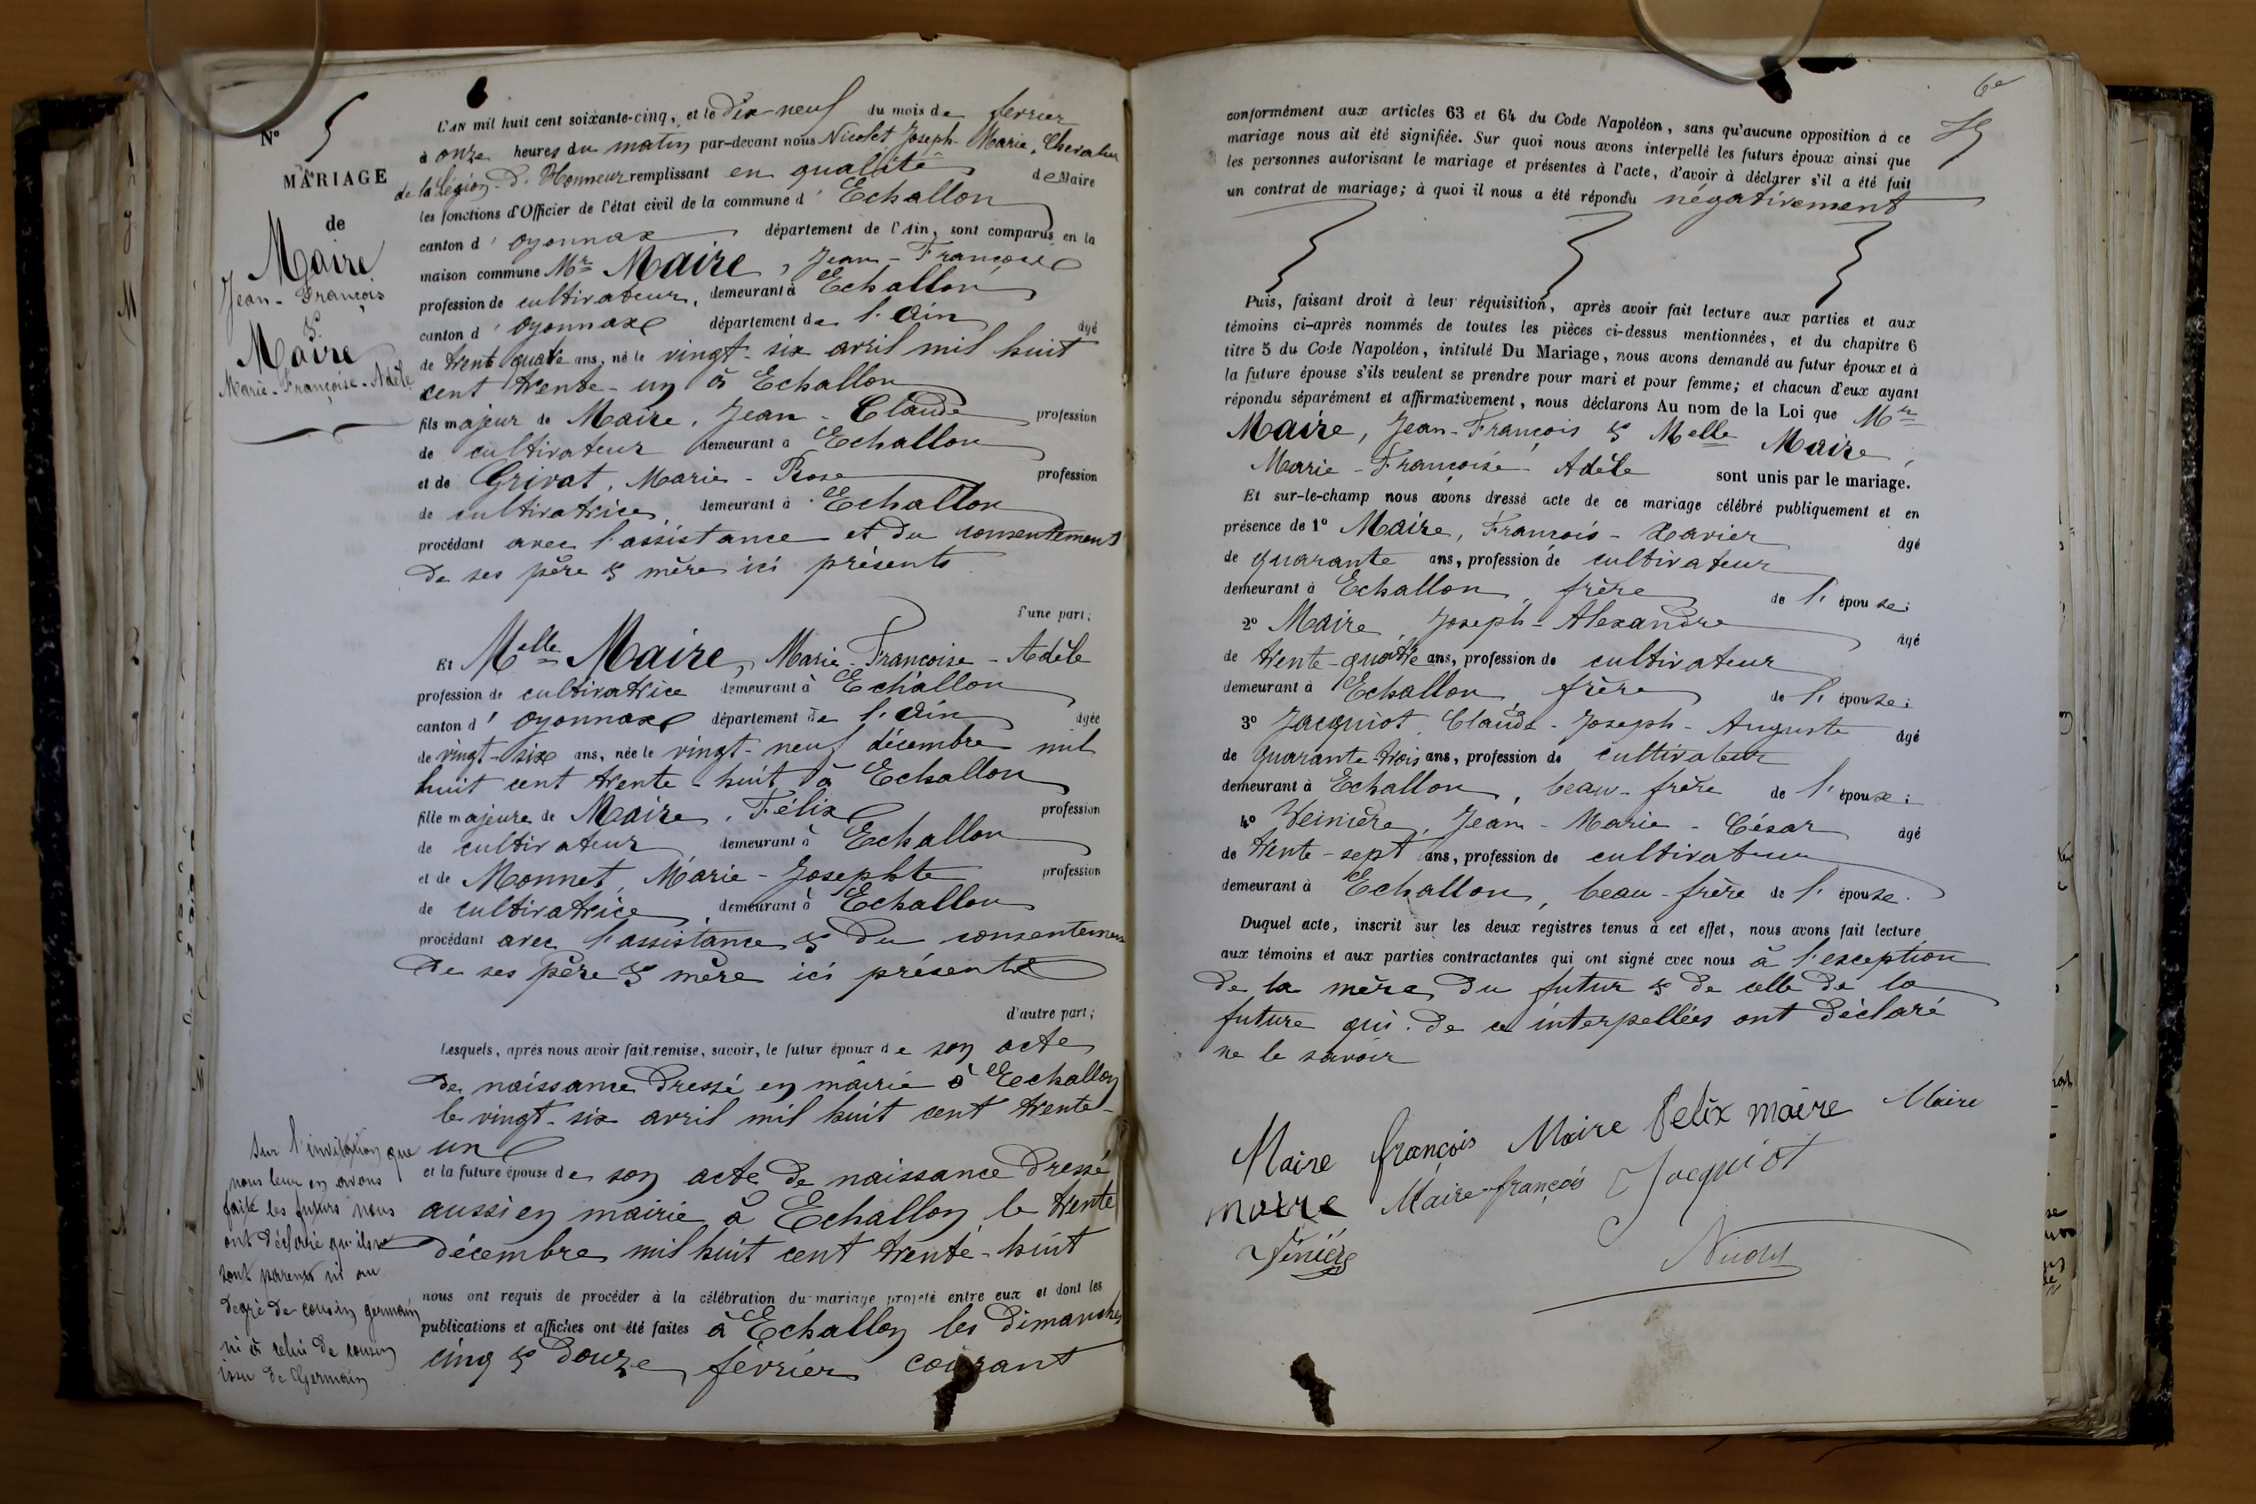 N° 5
MARIAGE
de
Maire
Jean-François
&
Maire
Marie-Françoise-Adèle
L'AN mil huit cent soixante-cinq, et le dix-neuf du mois de février
à onze heures du matin par-devant nous Nicolet Joseph-Marie, Chevalier
de la légion d'Honneur remplissant en qualité de Maire
les fonctions d'Officier de l'état civil de la commune d'Echallon
canton d'oyonnax département de l'Ain, sont comparus en la
maison commune Mr Maire, Jean-François
profession de cultivateur, demeurant à Echallon
canton d'oyonnax département de l'Ain âgé
de trent quatre ans, né le vingt-six avril mil huit
cent trente-un à Echallon
fils majeur de Maire, Jean-Claude profession
de cultivateur demeurant à Echallon
et de Grivat, Marie-Rose profession
de cultivatrice demeurant à Echallon
procédant avec l'assistance et du consentement
de ses père & mère ici présents
d'une part;
Et Melle Maire, Marie-Françoise-Adèle
profession de cultivatrice demeurant à Echallon
canton d'oyonnax département de l'Ain âgée
de vingt-six ans, née le vingt-neuf décembre mil
huit cent trente-huit à Echallon
fille majeure de Maire, Félix profession
de cultivateur demeurant à Echallon
et de Monnet, Marie-Josephte profession
de cultivatrice demeurant à Echallon
procédant avec l'assistance & du consentement
de ses père & mère ici présents
d'autre part;
Lesquels, après nous avoir fait remise, savoir, le futur époux de son acte
de naissance dressé en mairie à Echallon
le vingt-six avril mil huit cent trente-
un
et la future épouse de son acte de naissance dressé
aussi en mairie à Echallon le trente
décembre mil huit cent trente-huit
nous ont requis de procéder à la célébration du mariage projeté entre eux et dont les
publications et affiches ont été faites à Echallon les dimanches
cinq & douze février courant
Sur l'invitation que
nous leur en avons
faite les futurs nous
ont déclaré qu'ils ne
sont parents ni au
degré de cousin germain
ni à celui de cousin
issu de Germain
6e
conformément aux articles 63 et 64 du Code Napoléon, sans qu'aucune opposition à ce
mariage nous ait été signifiée. Sur quoi nous avons interpellé les futurs époux ainsi que
les personnes autorisant le mariage et présentes à l'acte, d'avoir à déclarer s'il a été fait
un contrat de mariage; à quoi il nous a été répondu négativement
Puis, faisant droit à leur réquisition, après avoir fait lecture aux parties et aux
témoins ci-après nommés de toutes les pièces ci-dessus mentionnées, et du chapitre 6
titre 5 du Code Napoléon, intitulé Du Mariage, nous avons demandé au futur époux et à
la future épouse s'ils veulent se prendre pour mari et pour femme; et chacun d'eux ayant
répondu séparément et affirmativement, nous déclarons Au nom de la Loi que Mr
Maire, Jean-François & Melle Maire,
Marie-Françoise-Adèle sont unis par le mariage.
Et sur-le-champ nous avons dressé acte de ce mariage célébré publiquement et en
présence de 1° Maire, François-Xavier âgé
de quarante ans, profession de cultivateur
demeurant à Echallon, frère de l'épouse;
2° Maire, Joseph-Alexandre âgé
de trente-quatre ans, profession de cultivateur
demeurant à Echallon, frère de l'épouse;
3° Jacquiot, Claude-Joseph-Auguste âgé
de quarante-trois ans, profession de cultivateur
demeurant à Echallon, beau-frère de l'épouse;
4° Veinière, Jean-Marie-César âgé
de trente-sept ans, profession de cultivateur
demeurant à Echallon, beau-frère de l'épouse.
Duquel acte, inscrit sur les deux registres tenus à cet effet, nous avons fait lecture
aux témoins et aux parties contractantes qui ont signé avec nous à l'exception
de la mère du futur & de celle de la
future qui de ce interpellées ont déclaré
ne le savoir
Maire françois Maire felix maire Maire
maire Maire françois Jacquiot
Vénière
Nicolet